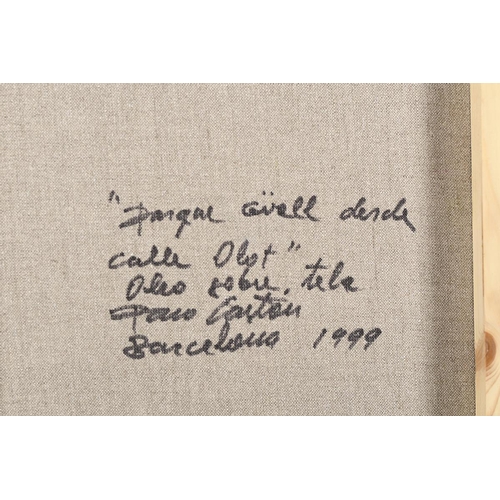 "Parque Güell desde
calle Olot"
Oleo sobre tela
Barcelona 1999